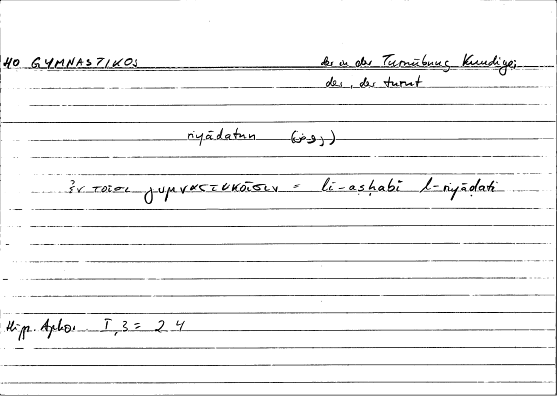 HO GYMNASTIKOS der in der Turnübung Kundige;
der, der turnt
riyādatun (روض)
ἐν τοῖσι γυμναστικοῖσιν = li-aṣḥabi l-riyāḍati
Hipp. Apho. I,3 = 2 4